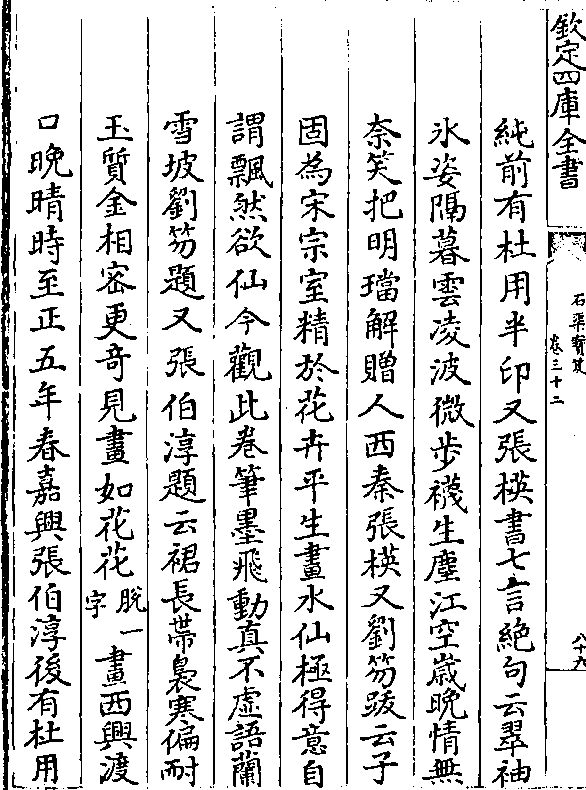 欽定四庫全書
石渠寳笈
卷三十二
八十九
純前有杜用半印又張楧書七言絶句云翠袖
氷姿隔暮雲凌波微步襪生塵江空歳晚情無
奈笑把明璫解贈人西秦張楧又劉笏跋云子
固為宋宗室精於花卉平生畫水仙極得意自
謂飄然欲仙今觀此卷筆墨飛動真不虛語蘭
雪坡劉笏題又張伯淳題云裙長帶裊寒偏耐
玉質金相密更奇見畫如花花脫一字畫西興渡
口晚晴時至正五年春嘉興張伯淳後有杜用